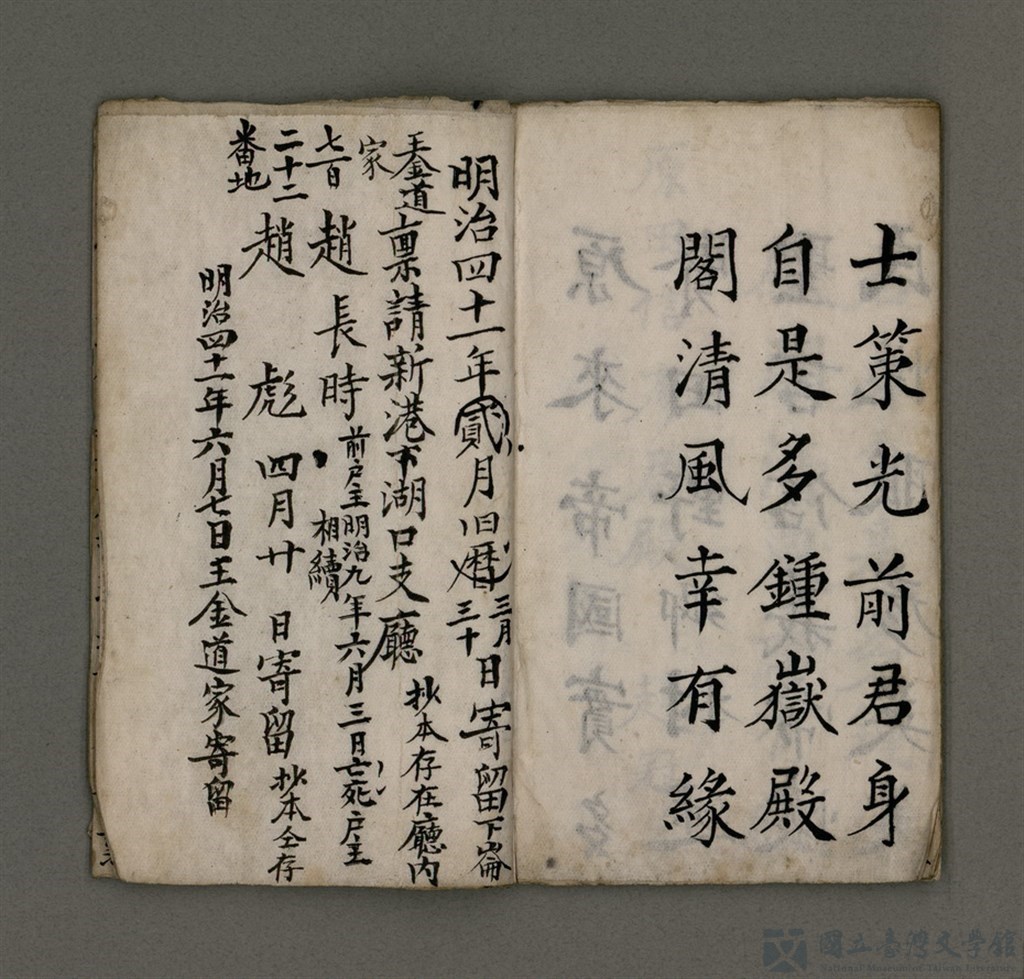 士策光前君身
自是多鍾嶽殿
閣清風幸有緣
明治四十一年貳月旧暦三月三十日寄留下崙
王金道家稟請新港下湖口支廳抄本存在廳内
七百二十二番地
趙長時前戸主明治九年六月三日亡死戸主相續
趙彪四月廿日寄留抄本仝存
明治四十一年六月七日王金道家寄留
國立臺灣文學館